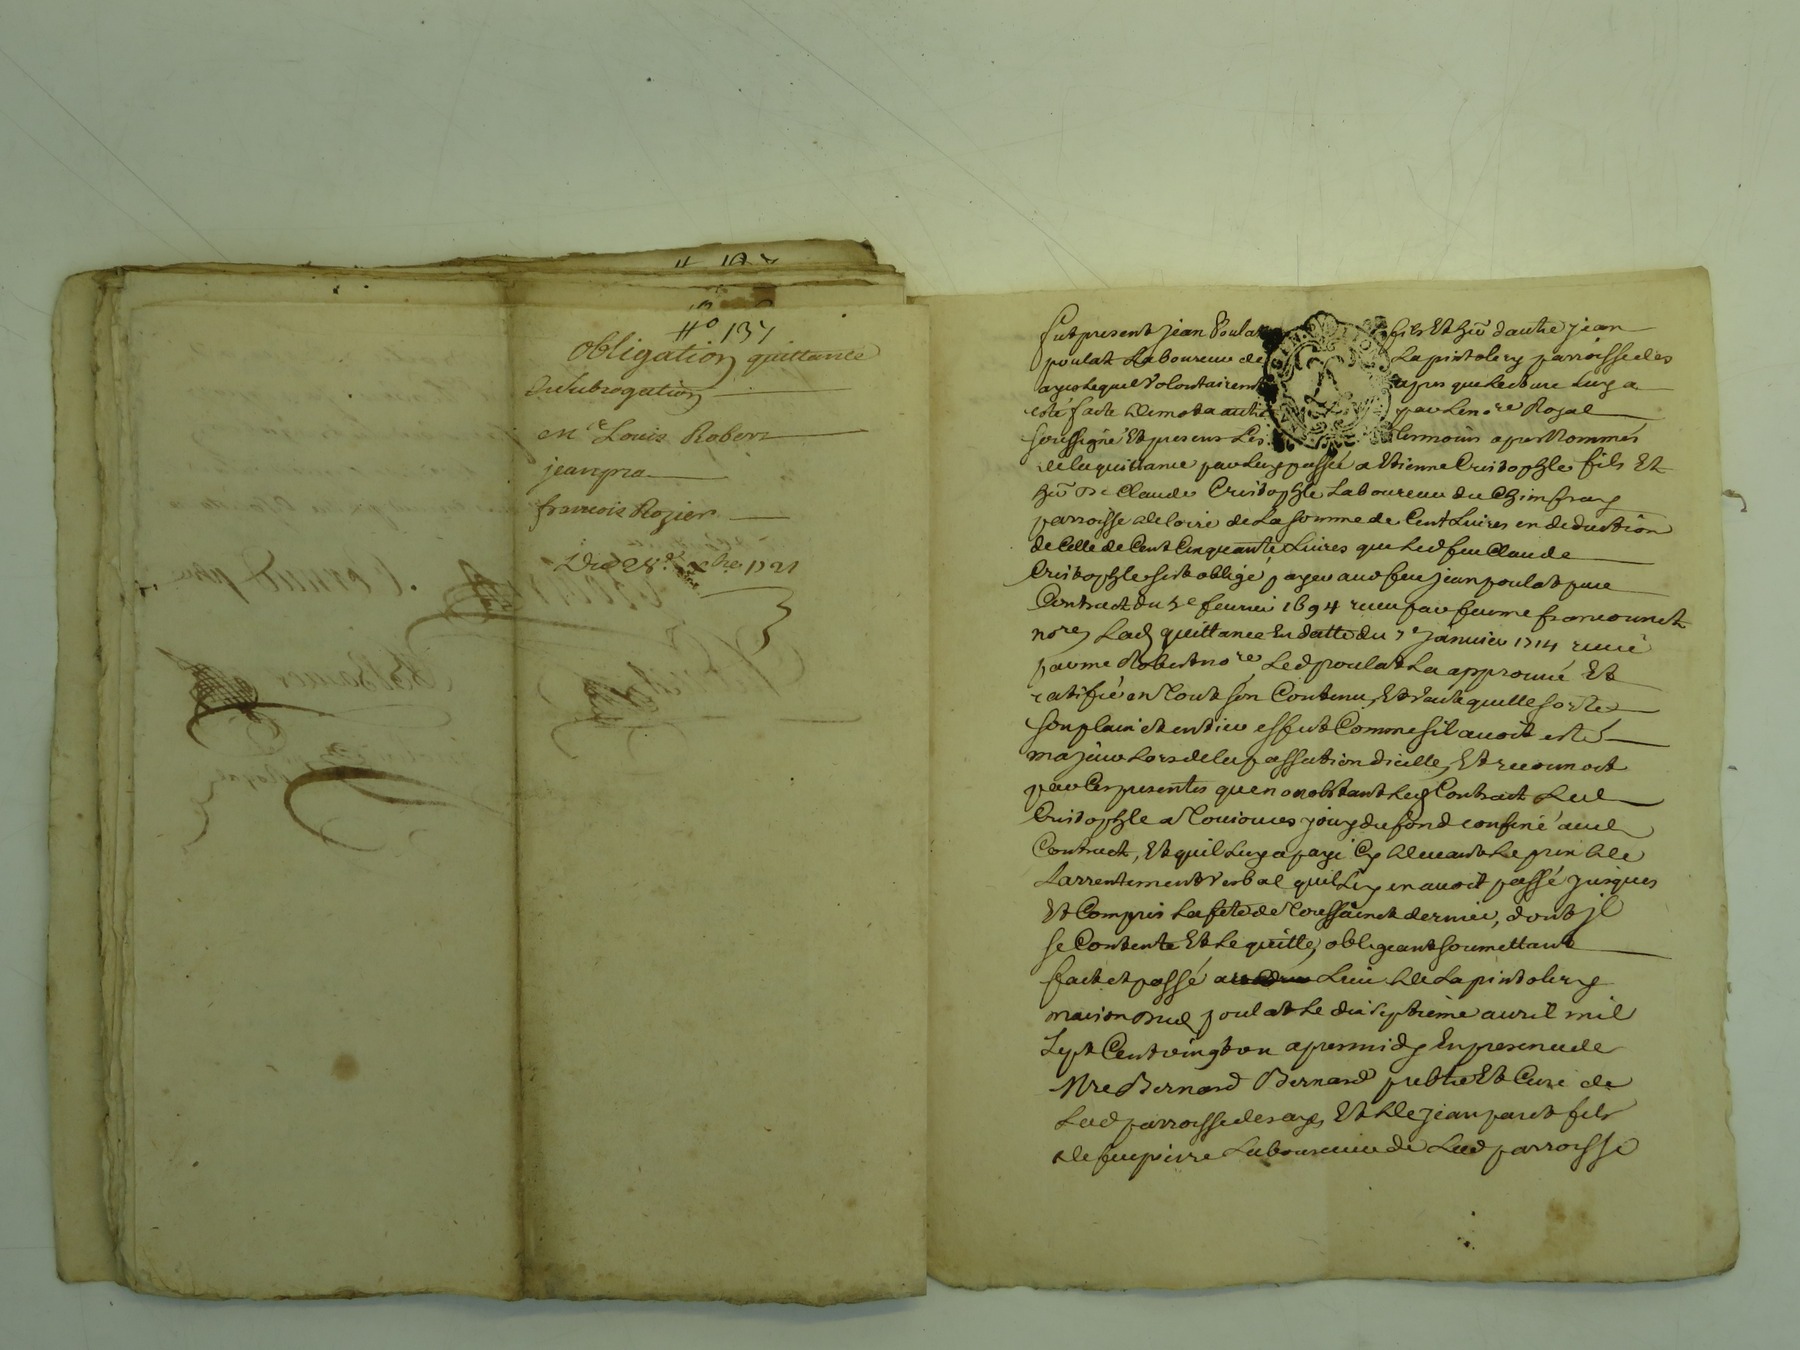 N° 137
Obligation quittance
Et subrogation
Me Louis Robert
jean
francois Rozier
Du 28e xbre 1721
fut present jean Poulat fils Et hér d'autre jean
poulat Laboureur de Lapintolery parroisse des
ayes Lequel volontairement apres que Lecture Luy a
esté faite de mot a autre par Le nore Royal
soussigné Et presens Les tesmoins apres Nommés
de la quittance par Luy passée a Etienne Cristophle fils Et
hér De Claude Cristophle Laboureur du
parroisse de loire de La somme de Cent Livres en deduction
de Celle de Cent Cinquante Livres que Led feu Claude
Cristophle s'est obligé payer aud feu jean poulat par
Contract du 5e fevrier 1694 receu par feu me
nore, Lad quittance En datte du 7e janvier 1714 receue
par me Robert nore Led poulat La approuvé Et
ratifié en Tout son Contenu, Et veut quelle sorte
son plain et entier effect Comme sil avoit esté
majeur Lors de la passation dicelle, Et reconnoit
par Ces presentes que nonobstant Led Contract Led
Cristophle a Tousiours jouy du fond confiné aud
Contract, Et quil Luy a payé Cy devant Le prix de
Larrentement verbal quil Luy en avoit passé jusques
Et Compris La fete de Toussainct dernier, dont jl
se Contente Et Le quitte, obligeant soumettant
fait et passé a Lieu de Lapintolery
maison dud poulat Le dix septieme avril mil
sept Cent vingt un apres midy En presence de
Mre Bernard Bernard prebtre Et Curé de
Lad parroisse des ayes, Et de jean paret fils
de feu pierre Laboureur de Lad parroisse